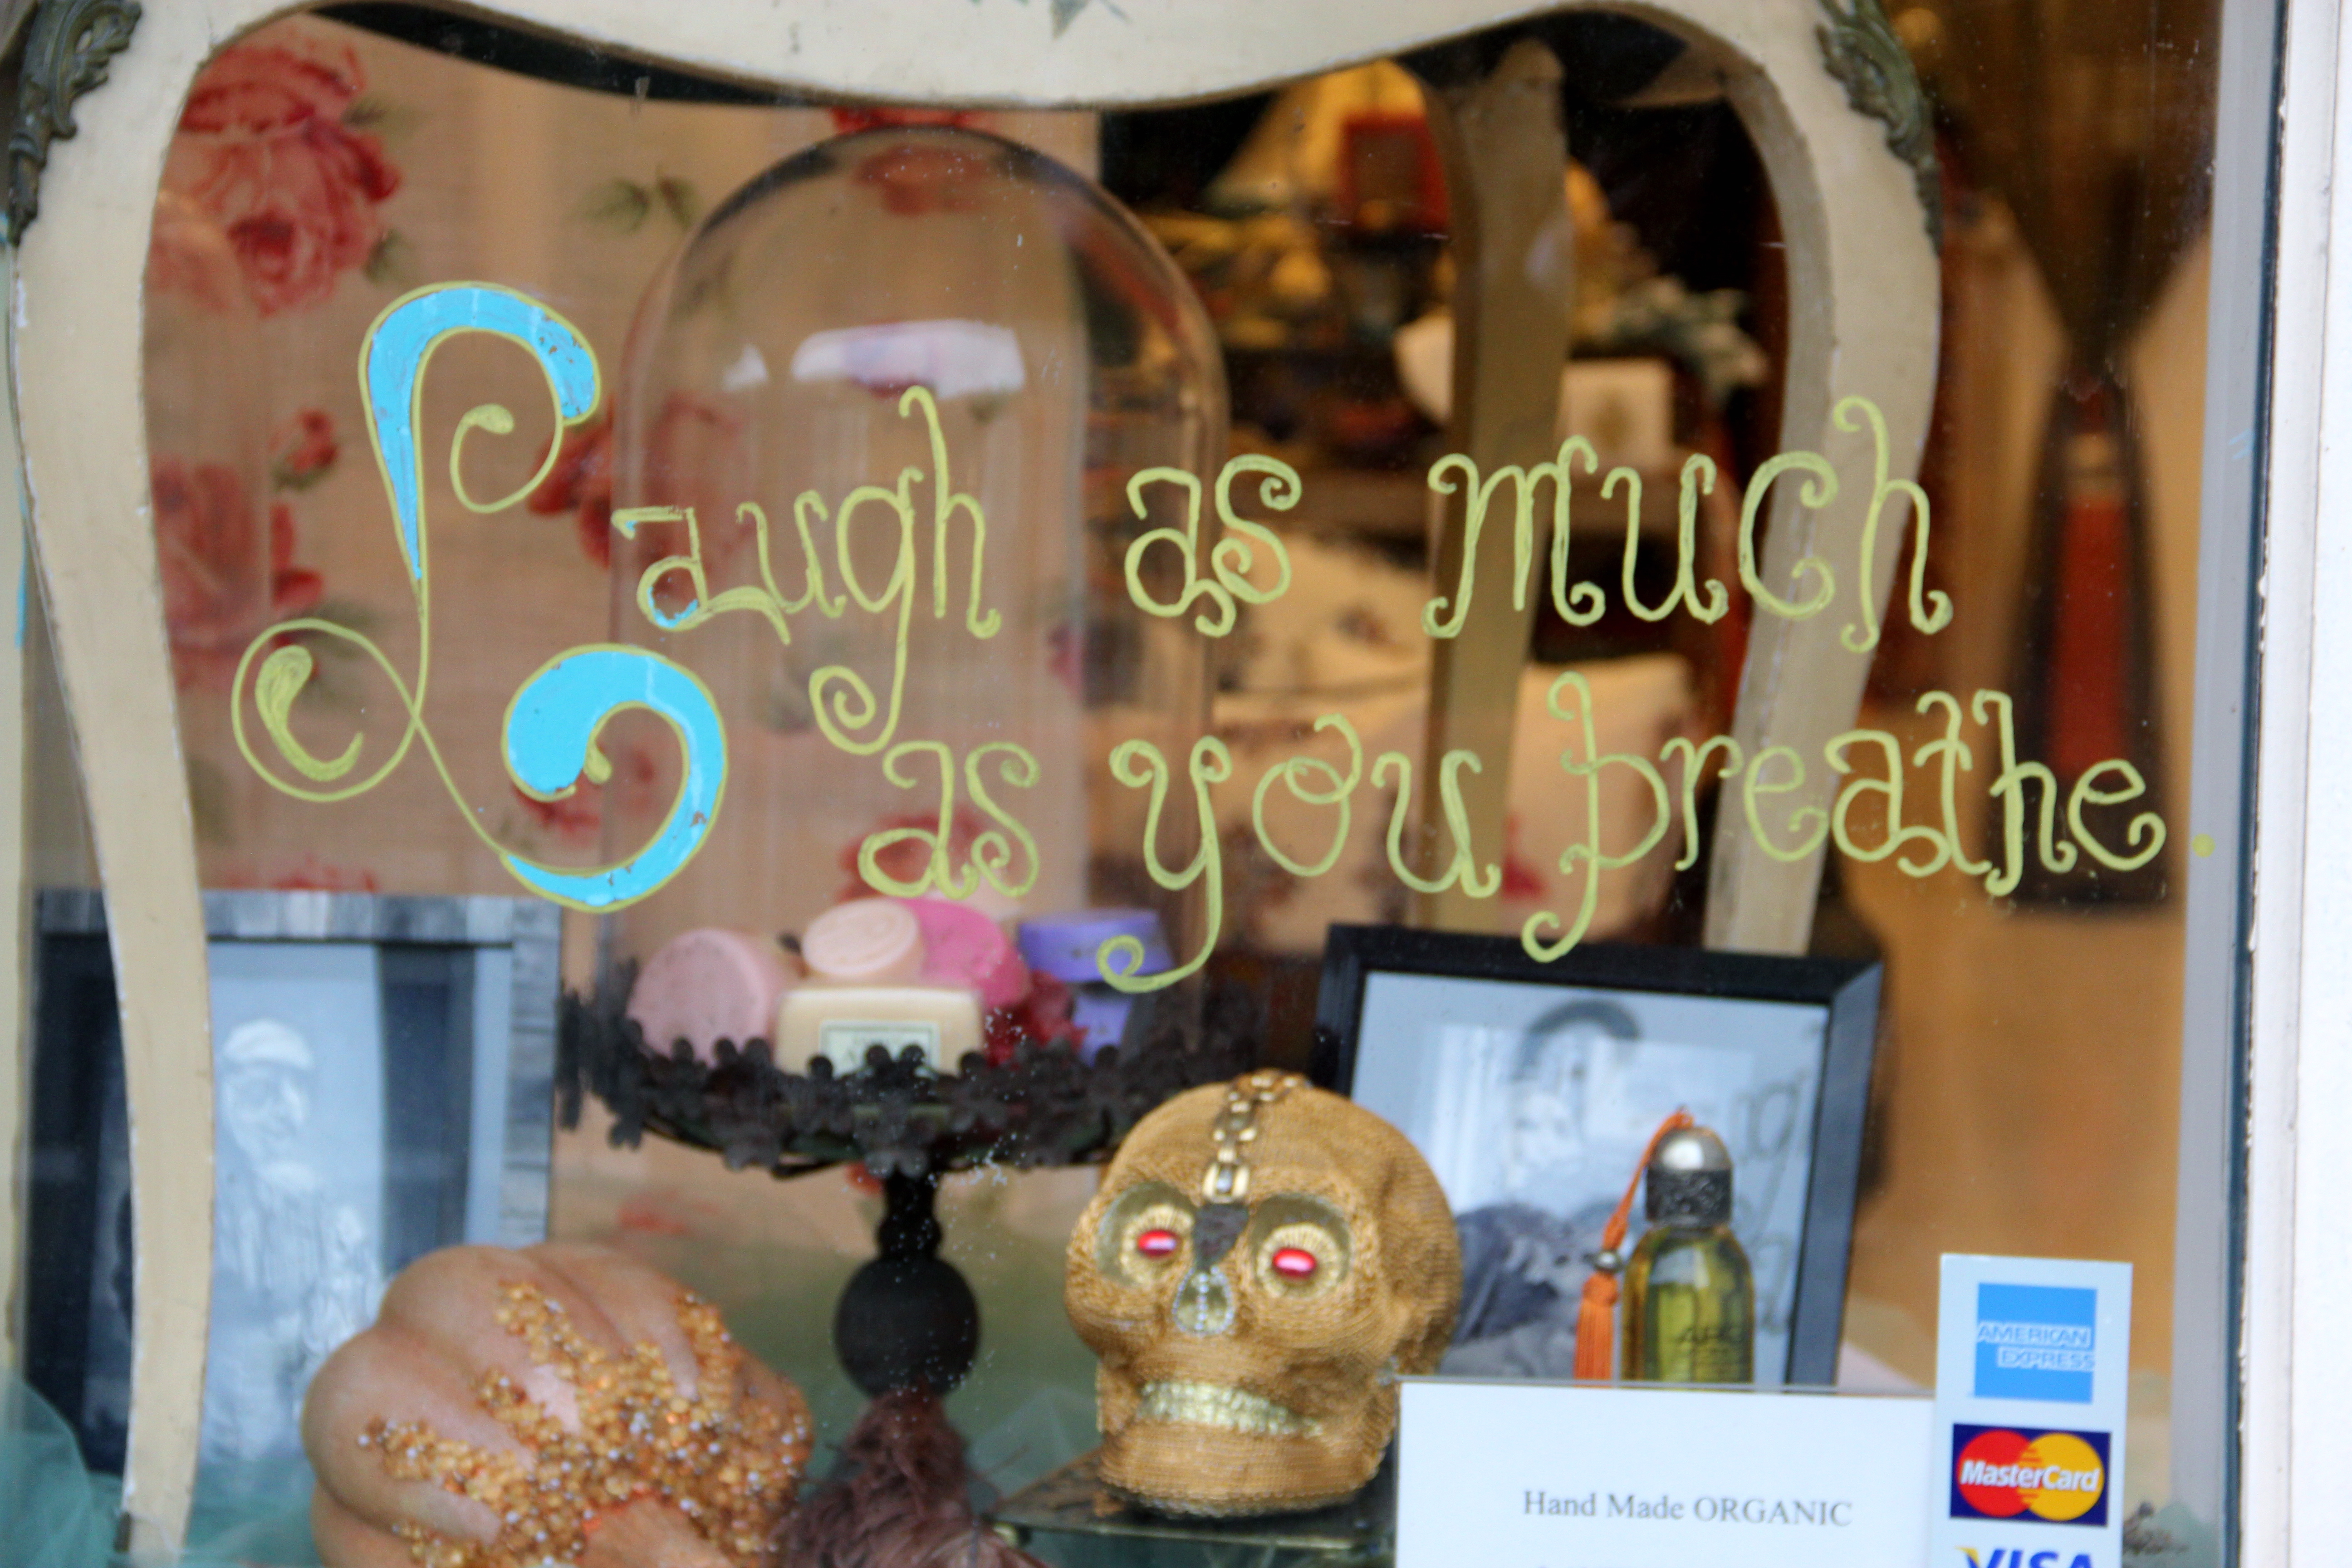 Laugh as much
as you breathe
AMERICAN
EXPRESS
MasterCard
Hand Made ORGANIC
VISA